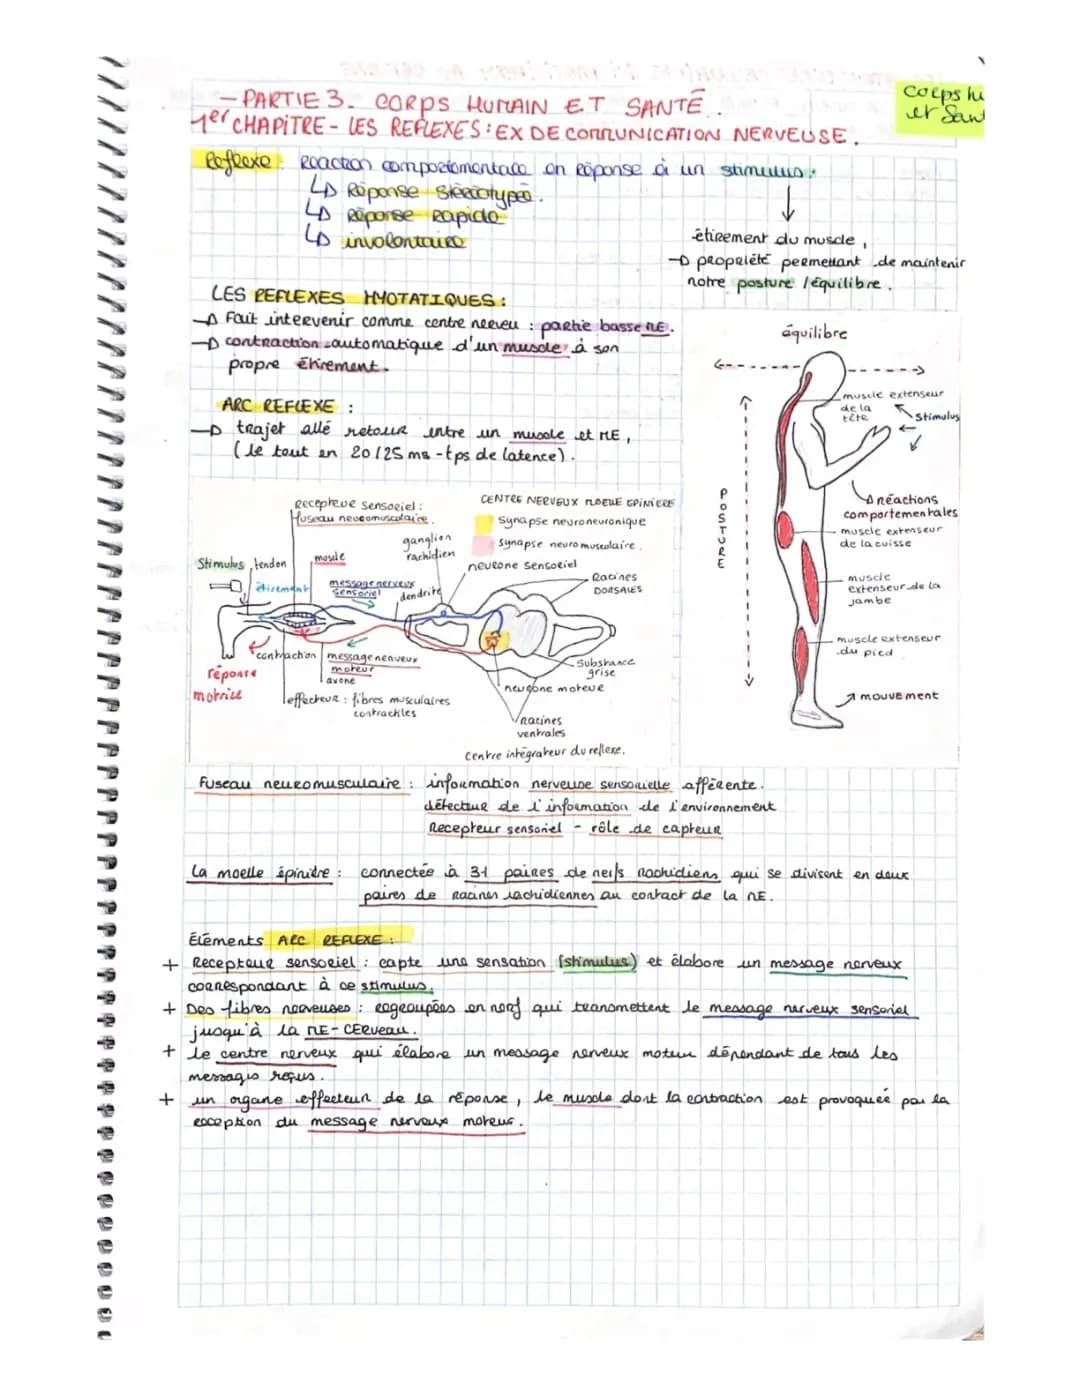 - PARTIE 3. CORPS HUMAIN ET SANTÉ.
1er CHAPITRE - LES REFLEXES : EX DE COMMUNICATION NERVEUSE.
corps hu
et San
Reflexe : Reaction comportementale en réponse à un stimulus :
↳ Réponse stéréotypée.
↳ Réponse rapide
↳ involontaire
étirement du muscle,
→ propriété permettant de maintenir
notre posture / équilibre.
LES REFLEXES MYOTATIQUES :
→ Fait intervenir comme centre nerveu : partie basse ME.
→ contraction automatique d'un muscle à son
propre étirement.
ARC REFLEXE :
→ trajet allé retour entre un muscle et ME,
(le tout en 20/25 ms - tps de latence).
équilibre
muscle extenseur
de la
tête
Stimulus
réactions
comportementales
POSTURE
muscle extenseur
de la cuisse
muscle
extenseur de la
jambe
muscle extenseur
du pied
mouvement
Recepteur sensoriel :
fuseau neuromusculaire.
CENTRE NERVEUX MOELLE EPINIERE
synapse neuroneuronique
synapse neuromusculaire.
ganglion
rachidien
neurone sensoriel
Stimulus
tendon
muscle
étirement
message nerveux
sensoriel
dendrite
Racines
DORSALES
contraction
message nerveux
moteur
axone
Substance
grise
réponse
motrice
effecteur : fibres musculaires
contractiles
neurone moteur
racines
ventrales
Centre intégrateur du reflexe.
Fuseau neuromusculaire : information nerveuse sensorielle afférente.
détecteur de l'information de l'environnement
Recepteur sensoriel - rôle de capteur
La moelle épinière : connectée à 31 paires de nerfs rachidiens qui se divisent en deux
paires de Racines rachidiennes au contact de la ME.
Éléments ARC REFLEXE :
+ Recepteur sensoriel : capte une sensation (stimulus) et élabore un message nerveux
correspondant à ce stimulus.
+ Des fibres nerveuses : regroupées en nerf qui transmettent le message nerveux sensoriel
jusqu'à la ME - CERveau.
+ le centre nerveux qui élabore un message nerveux moteur dépendant de tous les
messages reçus.
+ un organe effecteur de la réponse, le muscle dont la contraction est provoquée par la
reception du message nerveux moteur.